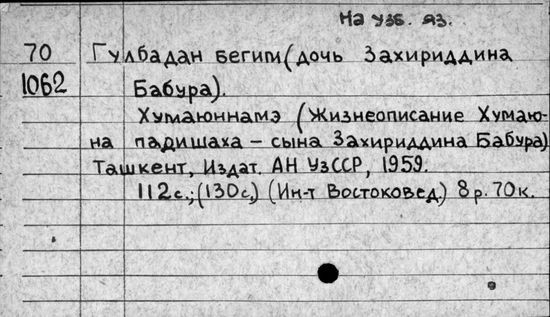 На узб. яз.
70 Гулбадан бегим (дочь Захириддина
1062 Бабура).
Хумаюннамэ (Жизнеописание Хумаю-
на падишаха - сына Захириддина Бабура)
Ташкент, Издат. АН УзССР, 1959.
112с.; (130с.) (Ин-т Востоковед.) 8р.70к.